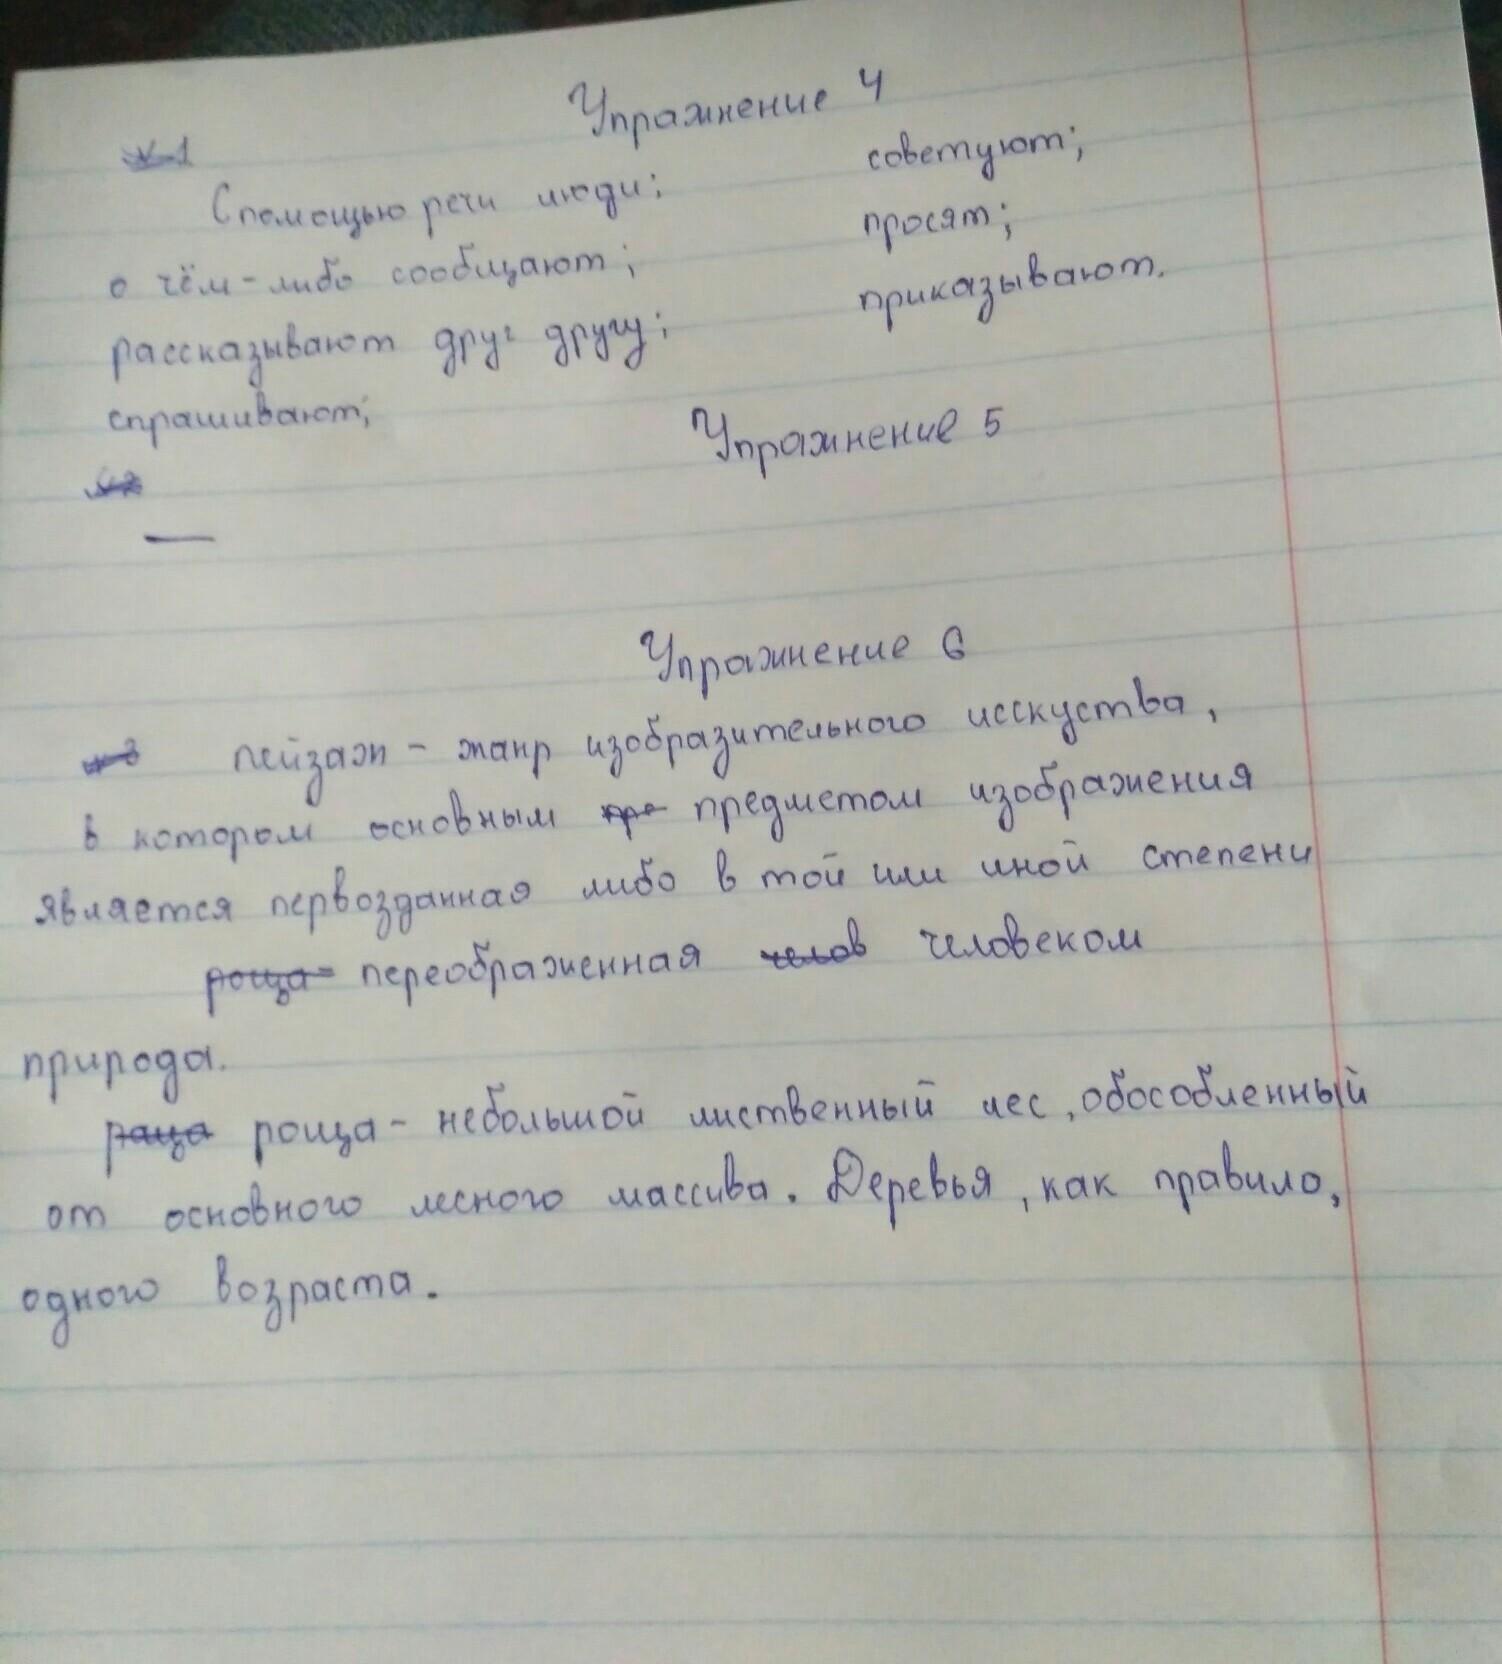 Упражнение 4
С помощью речи люди:
о чём-либо сообщают;
рассказывают друг другу;
спрашивают;
советуют;
просят;
приказывают.
Упражнение 5
—
Упражнение 6
пейзаж - жанр изобразительного исскуства,
в котором основным пре предметом изображения
является первозданная либо в той или иной степени
роща- переображенная челов человеком
природа.
раща роща - небольшой лиственный лес, обособленный
от основного лесного массива. Деревья, как правило,
одного возраста.